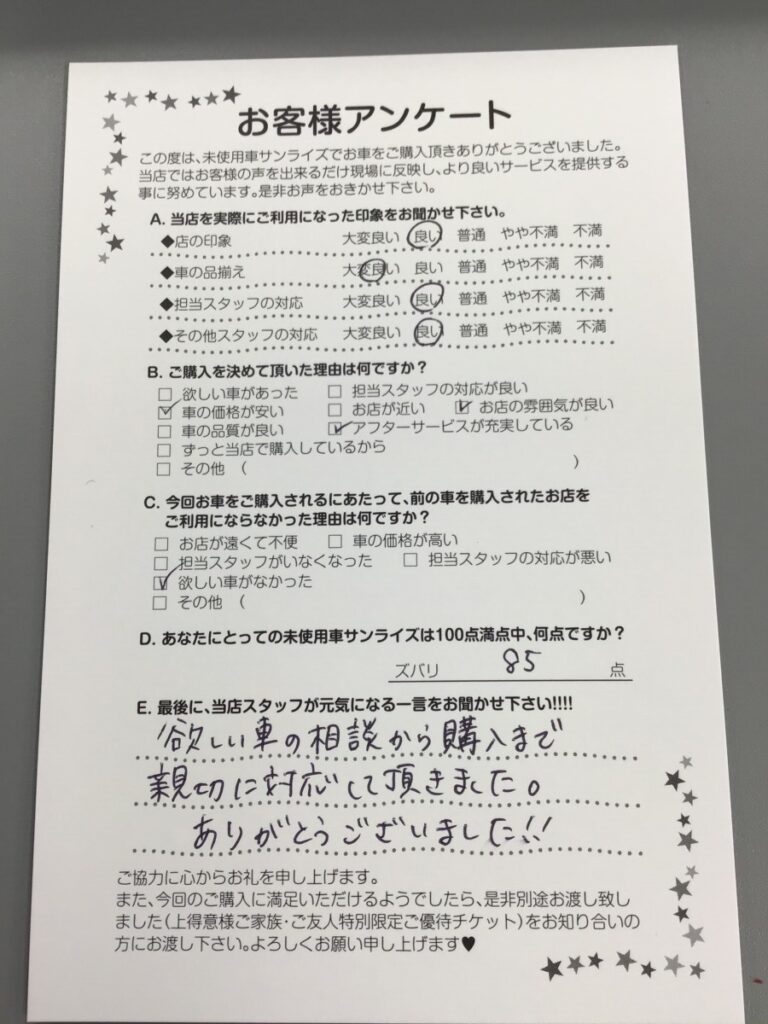 お客様アンケート
この度は、未使用車サンライズでお車をご購入頂きありがとうございました。
当店ではお客様の声を出来るだけ現場に反映し、より良いサービスを提供する
事に努めています。是非お声をおきかせ下さい。
A. 当店を実際にご利用になった印象をお聞かせ下さい。
◆店の印象 大変良い 良い 普通 やや不満 不満
◆車の品揃え 大変良い 良い 普通 やや不満 不満
◆担当スタッフの対応 大変良い 良い 普通 やや不満 不満
◆その他スタッフの対応 大変良い 良い 普通 やや不満 不満
B. ご購入を決めて頂いた理由は何ですか？
□ 欲しい車があった □ 担当スタッフの対応が良い
☑ 車の価格が安い □ お店が近い ☑ お店の雰囲気が良い
□ 車の品質が良い ☑ アフターサービスが充実している
□ ずっと当店で購入しているから
□ その他 ( )
C. 今回お車をご購入されるにあたって、前の車を購入されたお店を
ご利用にならなかった理由は何ですか？
□ お店が遠くて不便 □ 車の価格が高い
□ 担当スタッフがいなくなった □ 担当スタッフの対応が悪い
☑ 欲しい車がなかった
□ その他 ( )
D. あなたにとっての未使用車サンライズは100点満点中、何点ですか？
ズバリ 85 点
E. 最後に、当店スタッフが元気になる一言をお聞かせ下さい!!!!
欲しい車の相談から購入まで
親切に対応して頂きました。
ありがとうございました!!
ご協力に心からお礼を申し上げます。
また、今回のご購入に満足いただけるようでしたら、是非別途お渡し致し
ました(上得意様ご家族・ご友人特別限定ご優待チケット)をお知り合いの
方にお渡し下さい。よろしくお願い申し上げます♥